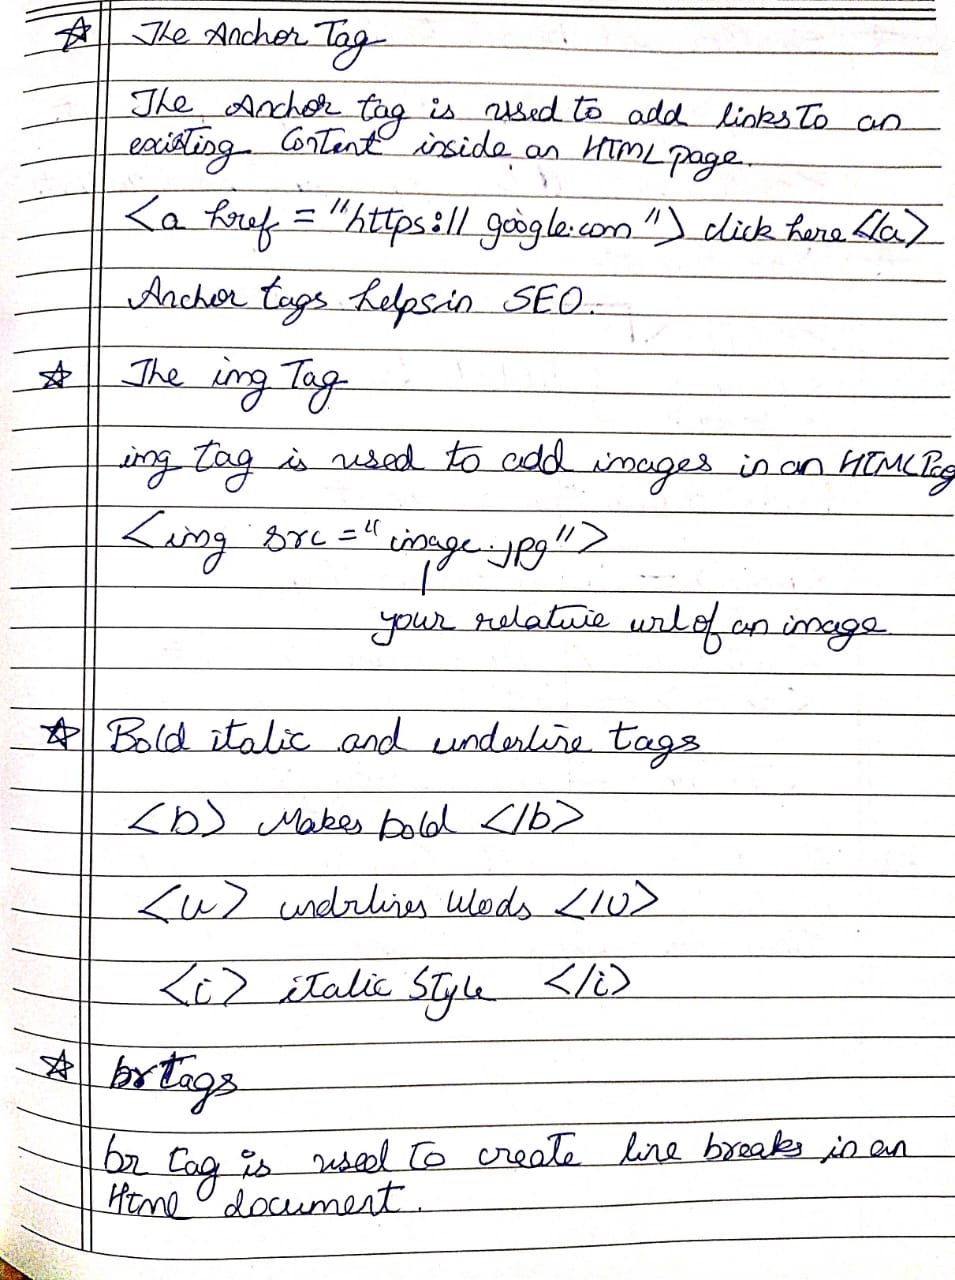 ☆ The Anchor Tag
The Anchor tag is used to add links To an
existing Content inside an HTML page.
<a href = "https://google.com"> click here </a>
Anchor tags helps in SEO.
☆ The img Tag
img tag is used to add images in an HTML Pag
<img src = "image.jpg">
your relative url of an image
☆ Bold italic and underline tags
<b> Makes bold </b>
<u> undrlines Wods </u>
<i> italic Style </i>
☆ br tags
br tag is used to create line breaks in an
Html document.